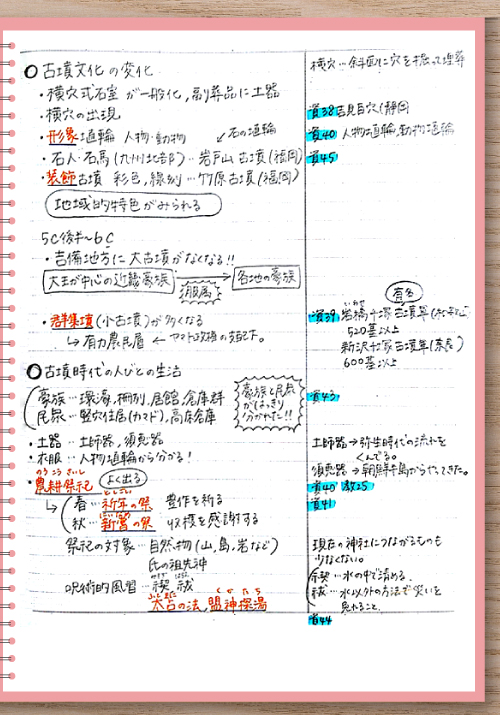 ○古墳文化の変化
・横穴式石室が一般化,副葬品に土器
・横穴の出現
・形象埴輪 人物・動物
石の埴輪
・石人・石馬(九州北部)…岩戸山古墳(福岡)
・装飾古墳 彩色,線刻…竹原古墳(福岡)
地域的特色がみられる
5C後半~6C
・吉備地方に大古墳がなくなる!!
大王が中心の近畿豪族 → 各地の豪族
服属
・群集墳(小古墳)が多くなる
↳有力農民層 ←
○古墳時代の人びとの生活
豪族…環濠,柵列,居館,倉庫群
民衆…竪穴住居(カマド),高床倉庫
豪族と民衆がはっきり分かれた!!
・土器…土師器,須恵器
・衣服…人物埴輪から分かる!
のうこうさいし
・農耕祭祀 よく出る
としごい
春…祈年の祭 豊作を祈る
秋…新嘗の祭 収穫を感謝する
祭祀の対象…自然物(山,島,岩など)
氏の祖先神
呪術的風習…禊 祓
ふとまに くかたち
太占の法,盟神探湯
横穴…斜面に穴を掘って埋葬
資38 吉見百穴(静岡)
資40 人物埴輪,動物埴輪
資45
有名
資39 岩橋千塚古墳群
520基以上
新沢千塚古墳群(奈良)
600基以上
資43
土師器→弥生時代の流れを
くんでる。
須恵器→朝鮮半島からやってきた。
資40 教25
資41
現在の神社につながるものも
少なくない。
禊…水の中で清める。
祓…水以外の方法で災いを
免れること。
資44